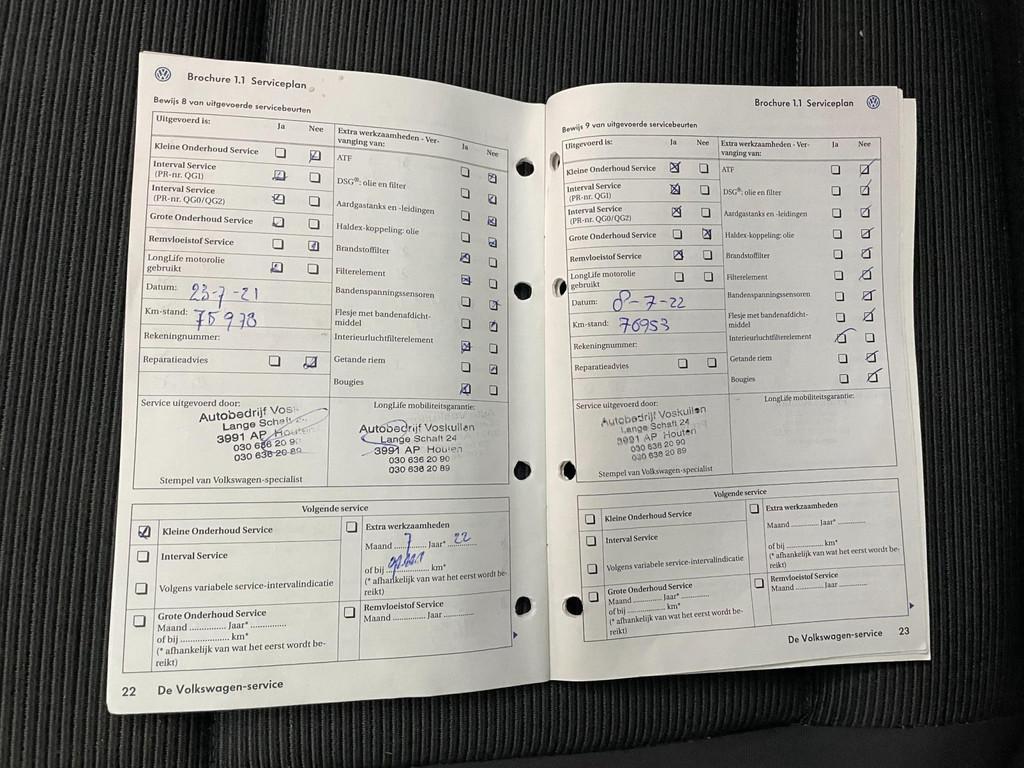 Brochure 1.1 Serviceplan
Bewijs 8 van uitgevoerde servicebeurten
Uitgevoerd is: Ja Nee
Kleine Onderhoud Service
Interval Service
(PR-nr. QG1)
Interval Service
(PR-nr. QG0/QG2)
Grote Onderhoud Service
Remvloeistof Service
LongLife motorolie
gebruikt
Datum: 23-7-21
Km-stand: 75978
Rekeningnummer:
Reparatieadvies
Extra werkzaamheden - Ver-
vanging van: Ja Nee
ATF
DSG®: olie en filter
Aardgastanks en -leidingen
Haldex-koppeling: olie
Brandstoffilter
Filterelement
Bandenspanningssensoren
Flesje met bandenafdicht-
middel
Interieurluchtfilterelement
Getande riem
Bougies
Service uitgevoerd door:
Autobedrijf Vosk
Lange Schaft 24
3991 AP Houten
030 636 20 90
030 636 20 89
Stempel van Volkswagen-specialist
LongLife mobiliteitsgarantie:
Autobedrijf Voskuilen
Lange Schaft 24
3991 AP Houten
030 636 20 90
030 636 20 89
Volgende service
Kleine Onderhoud Service
Interval Service
Volgens variabele service-intervalindicatie
Grote Onderhoud Service
Maand .............. Jaar* ..............
of bij ...................... km*
(* afhankelijk van wat het eerst wordt be-
reikt)
Extra werkzaamheden
Maand 7 Jaar* 22
of bij km*
(* afhankelijk van wat het eerst wordt be-
reikt)
Remvloeistof Service
Maand .............. Jaar ..............
22 De Volkswagen-service
Brochure 1.1 Serviceplan
Bewijs 9 van uitgevoerde servicebeurten
Uitgevoerd is: Ja Nee
Kleine Onderhoud Service
Interval Service
(PR-nr. QG1)
Interval Service
(PR-nr. QG0/QG2)
Grote Onderhoud Service
Remvloeistof Service
LongLife motorolie
gebruikt
Datum: 8-7-22
Km-stand: 76953
Rekeningnummer:
Reparatieadvies
Extra werkzaamheden - Ver-
vanging van: Ja Nee
ATF
DSG®: olie en filter
Aardgastanks en -leidingen
Haldex-koppeling: olie
Brandstoffilter
Filterelement
Bandenspanningssensoren
Flesje met bandenafdicht-
middel
Interieurluchtfilterelement
Getande riem
Bougies
Service uitgevoerd door:
Autobedrijf Voskuilen
Lange Schaft 24
3991 AP Houten
030 636 20 90
030 636 20 89
Stempel van Volkswagen-specialist
LongLife mobiliteitsgarantie:
Volgende service
Kleine Onderhoud Service
Interval Service
Volgens variabele service-intervalindicatie
Grote Onderhoud Service
Maand .............. Jaar* ..............
of bij ...................... km*
(* afhankelijk van wat het eerst wordt be-
reikt)
Extra werkzaamheden
Maand .............. Jaar* ..............
of bij ...................... km*
(* afhankelijk van wat het eerst wordt be-
reikt)
Remvloeistof Service
Maand .............. Jaar ..............
De Volkswagen-service 23